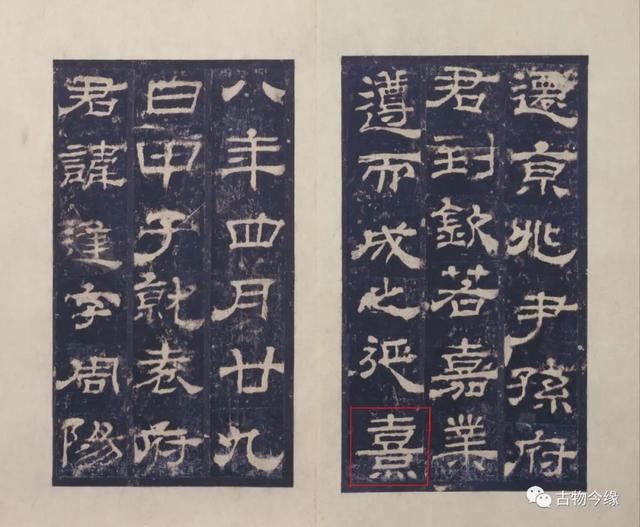 遷京兆尹孫府
君到欽若嘉業
遵而成之延熹
八年四月廿九
日甲子就袁府
君諱逢字周陽
古物今缘